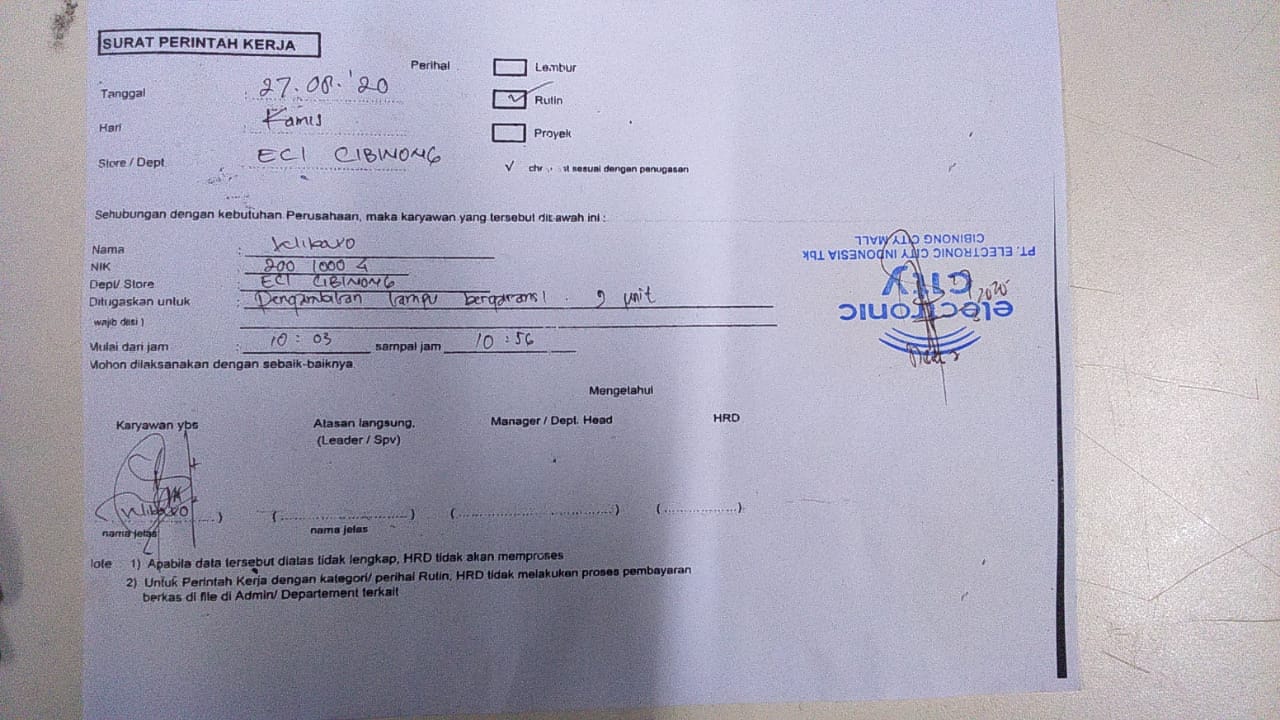 SURAT PERINTAH KERJA
Perihal
Lembur
Tanggal : 27.08.'20
Rutin
Hari : Kamis
Proyek
Store / Dept ECI CIBINONG
√ sesuai dengan penugasan
Sehubungan dengan kebutuhan Perusahaan, maka karyawan yang tersebut dibawah ini :
Nama :
NIK : 200 1000 4
Dept/ Store : ECI CIBINONG
Ditugaskan untuk : Pengambilan lampu bergaransi. 9 unit
wajib diisi )
Mulai dari jam : 10 : 03 sampai jam 10 : 56
Mohon dilaksanakan dengan sebaik-baiknya
PT. ELECTRONIC CITY INDONESIA Tbk
CIBINONG CITY MALL
electronic
city
2020
Mengetahui
Karyawan ybs
Atasan langsung,
(Leader / Spv)
Manager / Dept. Head
HRD
nama jelas
nama jelas
Note 1) Apabila data tersebut diatas tidak lengkap, HRD tidak akan memproses
2) Untuk Perintah Kerja dengan kategori/ perihal Rutin, HRD tidak melakukan proses pembayaran
berkas di file di Admin/ Departement terkait